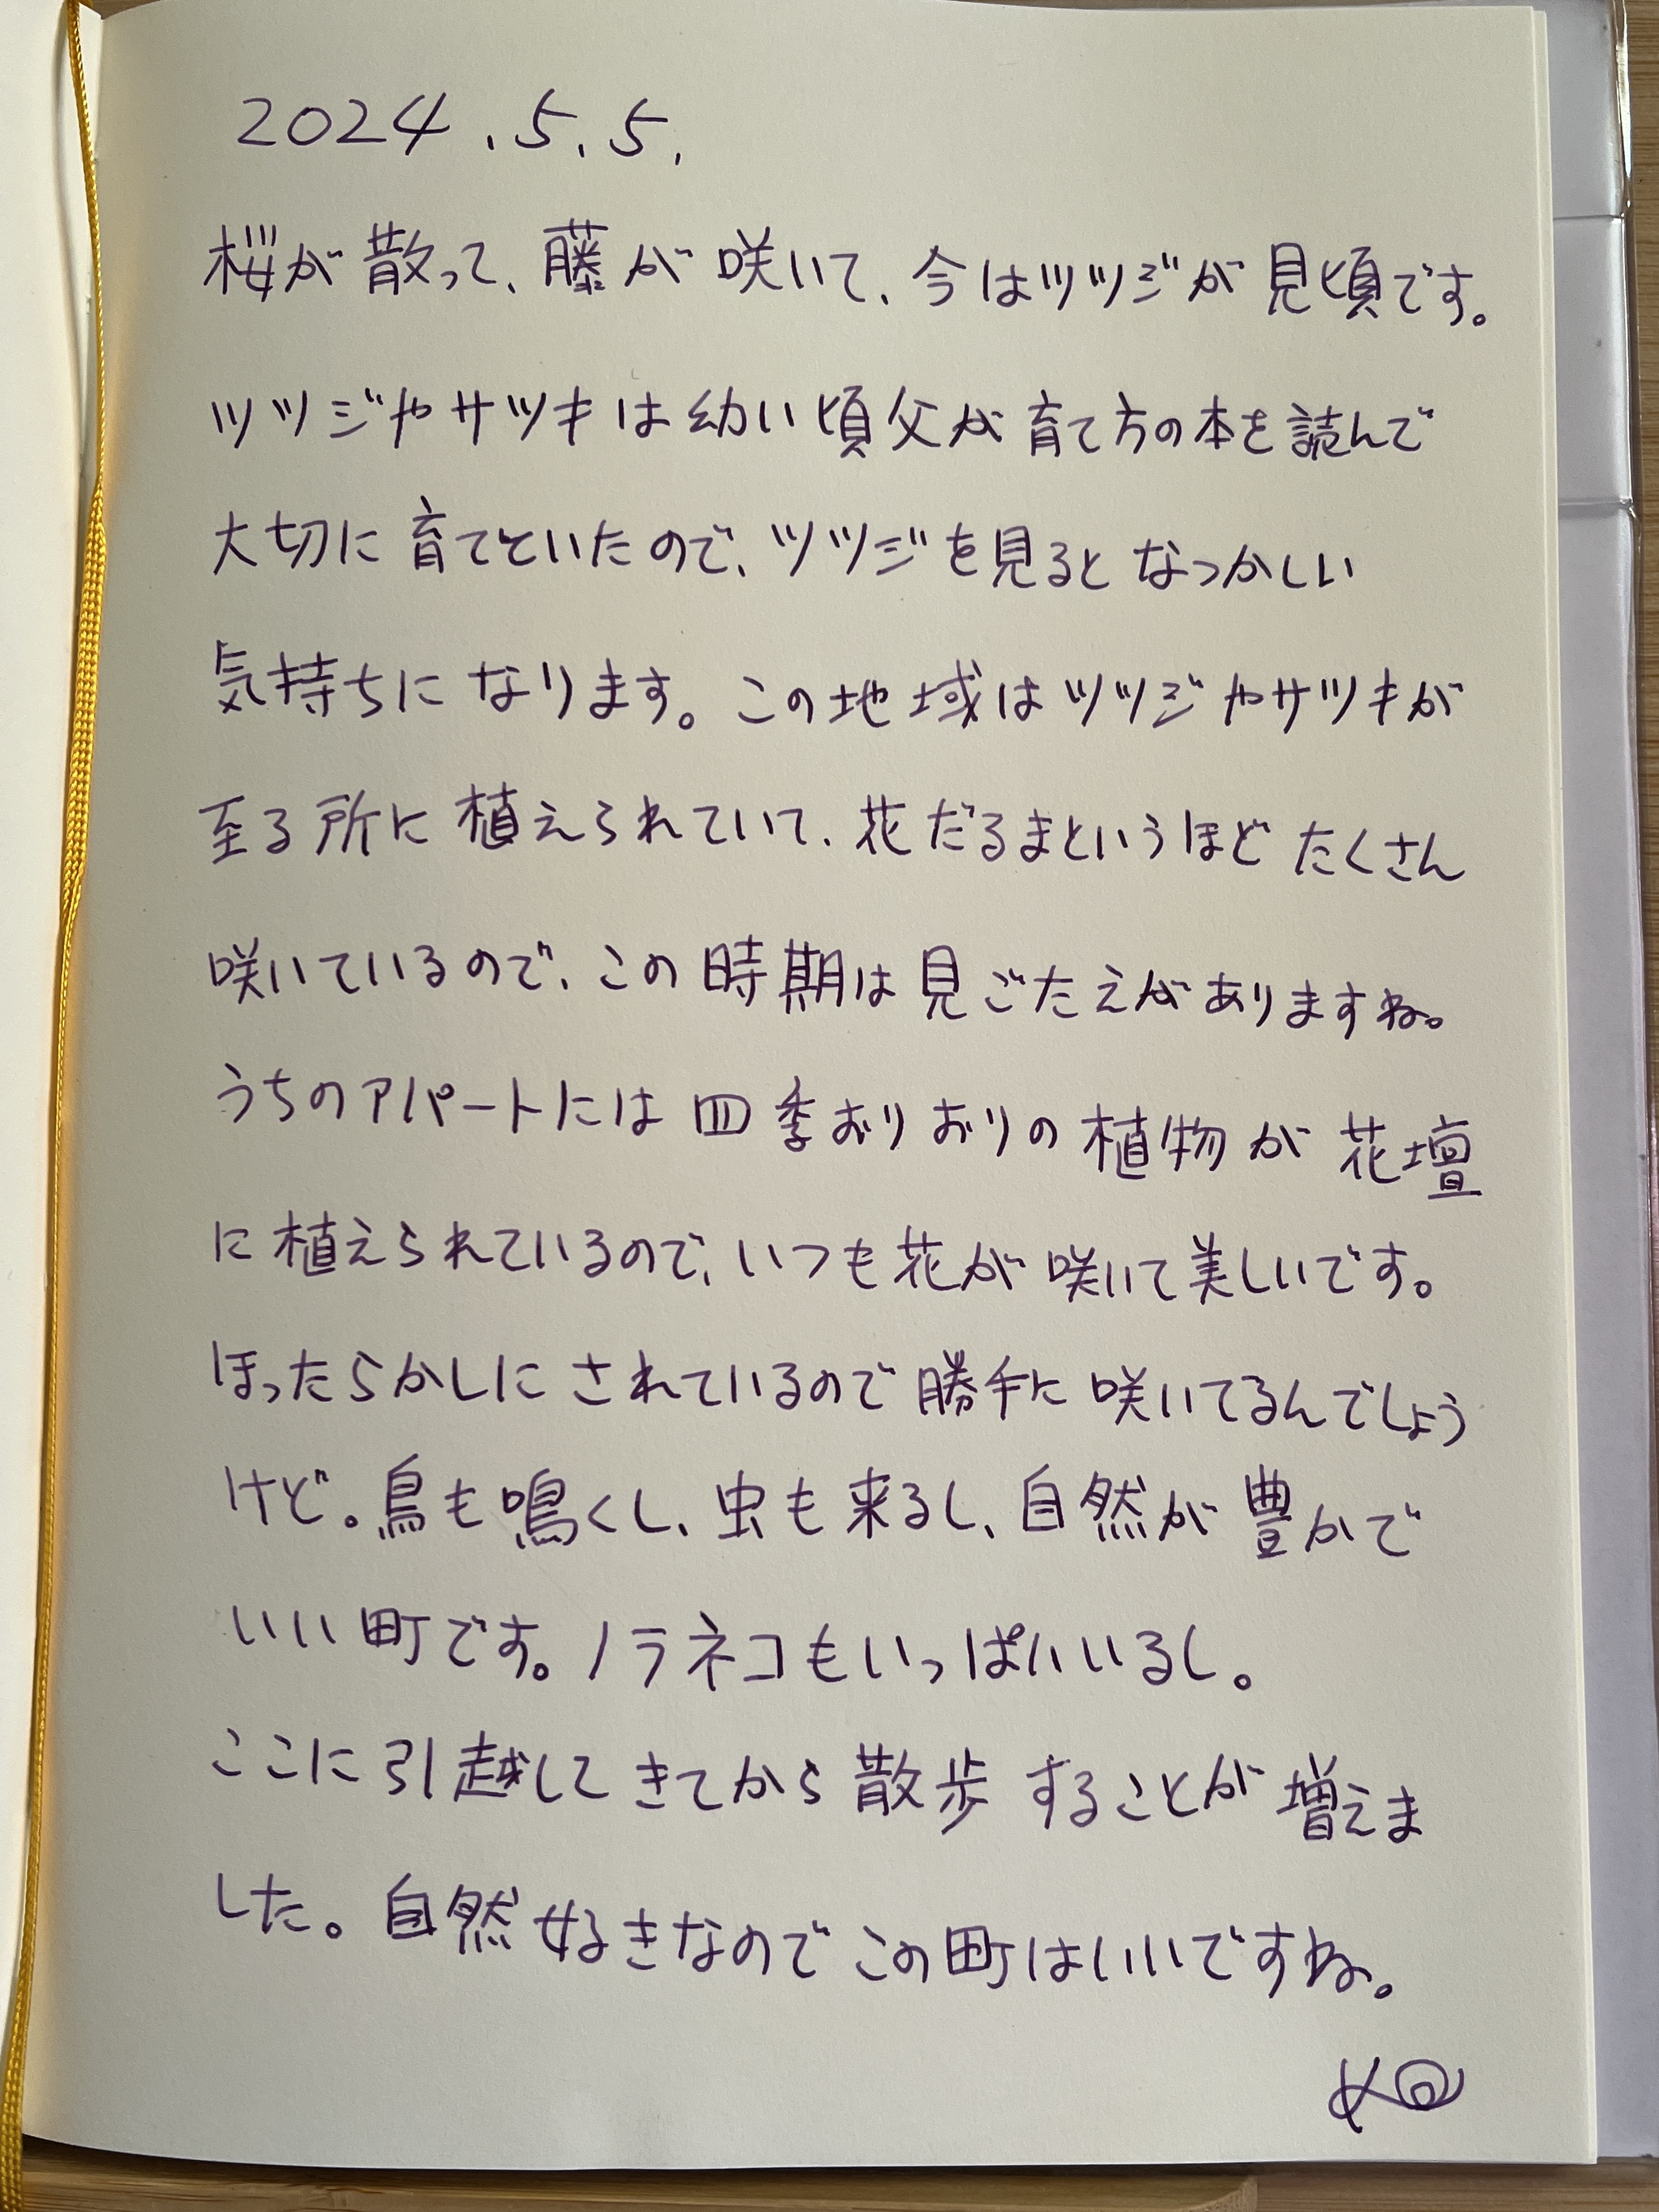 2024.5.5.
桜が散って、藤が咲いて、今はツツジが見頃です。
ツツジやサツキは幼い頃父が育て方の本を読んで
大切に育てていたので、ツツジを見るとなつかしい
気持ちになります。この地域はツツジやサツキが
至る所に植えられていて、花だるまというほどたくさん
咲いているので、この時期は見ごたえがありますね。
うちのアパートには四季おりおりの植物が花壇
に植えられているので、いつも花が咲いて美しいです。
ほったらかしにされているので勝手に咲いてるんでしょう
けど。鳥も鳴くし、虫も来るし、自然が豊かで
いい町です。ノラネコもいっぱいいるし。
ここに引越してきてから散歩することが増えま
した。自然好きなのでこの町はいいですね。